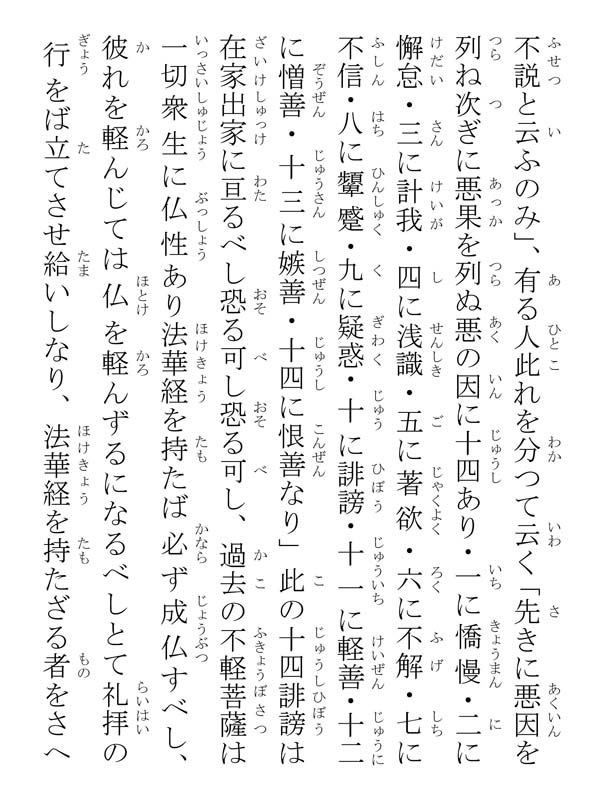 不説と云ふのみ」、有る人此れを分つて云く「先きに悪因を
列ね次ぎに悪果を列ぬ悪の因に十四あり・一に憍慢・二に
懈怠・三に計我・四に浅識・五に著欲・六に不解・七に
不信・八に顰蹙・九に疑惑・十に誹謗・十一に軽善・十二
に憎善・十三に嫉善・十四に恨善なり」此の十四誹謗は
在家出家に亘るべし恐る可し恐る可し、過去の不軽菩薩は
一切衆生に仏性あり法華経を持たば必ず成仏すべし、
彼れを軽んじては仏を軽んずるになるべしとて礼拝の
行をば立てさせ給いしなり、法華経を持たざる者をさへ